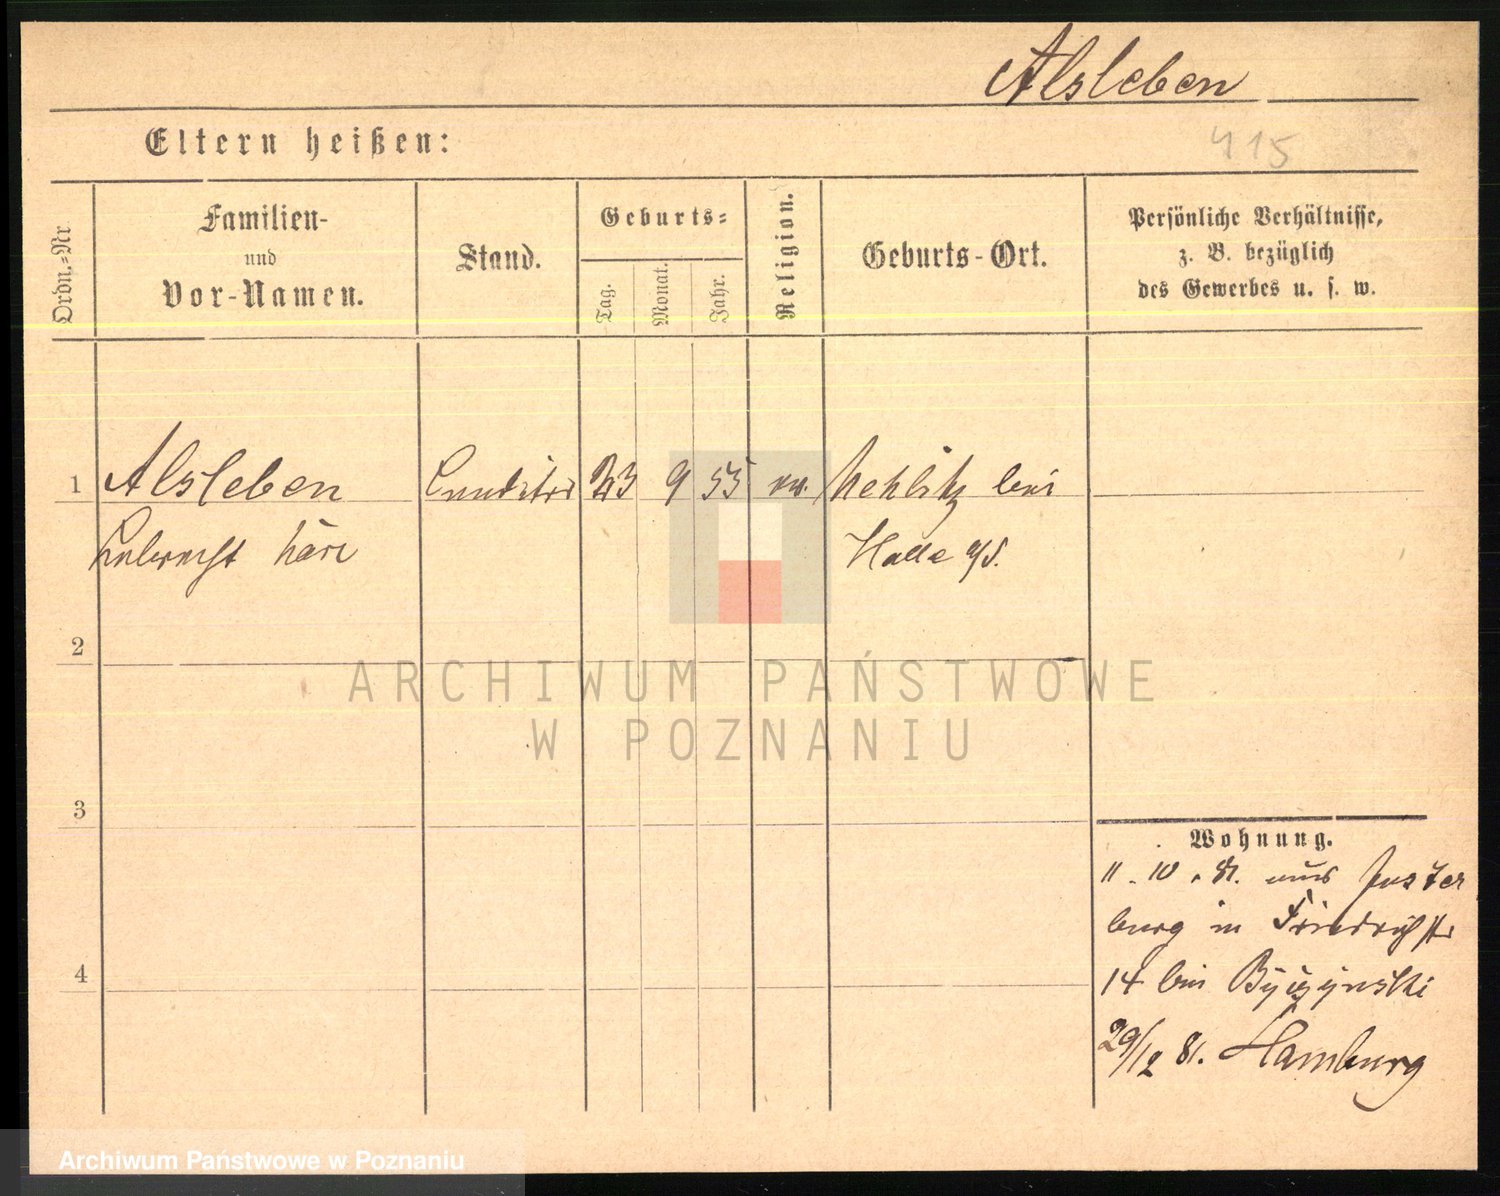 Alsleben
415
Eltern heißen:
Ordn.-Nr
Familien-
und
Vor-Namen.
Stand.
Geburts-
Tag.
Monat.
Jahr.
Religion.
Geburts-Ort.
Persönliche Verhältnisse,
z. B. bezüglich
des Gewerbes u. s. w.
1 Alsleben Conditor 23 9 55 ev. Nehlitz bei
Halle a/S.
2
ARCHIWUM PAŃSTWOWE
W POZNANIU
3
4
Wohnung.
11. 10. 81. aus Inster
burg in Friedrichstr
14 bei
29/12 81. Hamburg
Archiwum Państwowe w Poznaniu